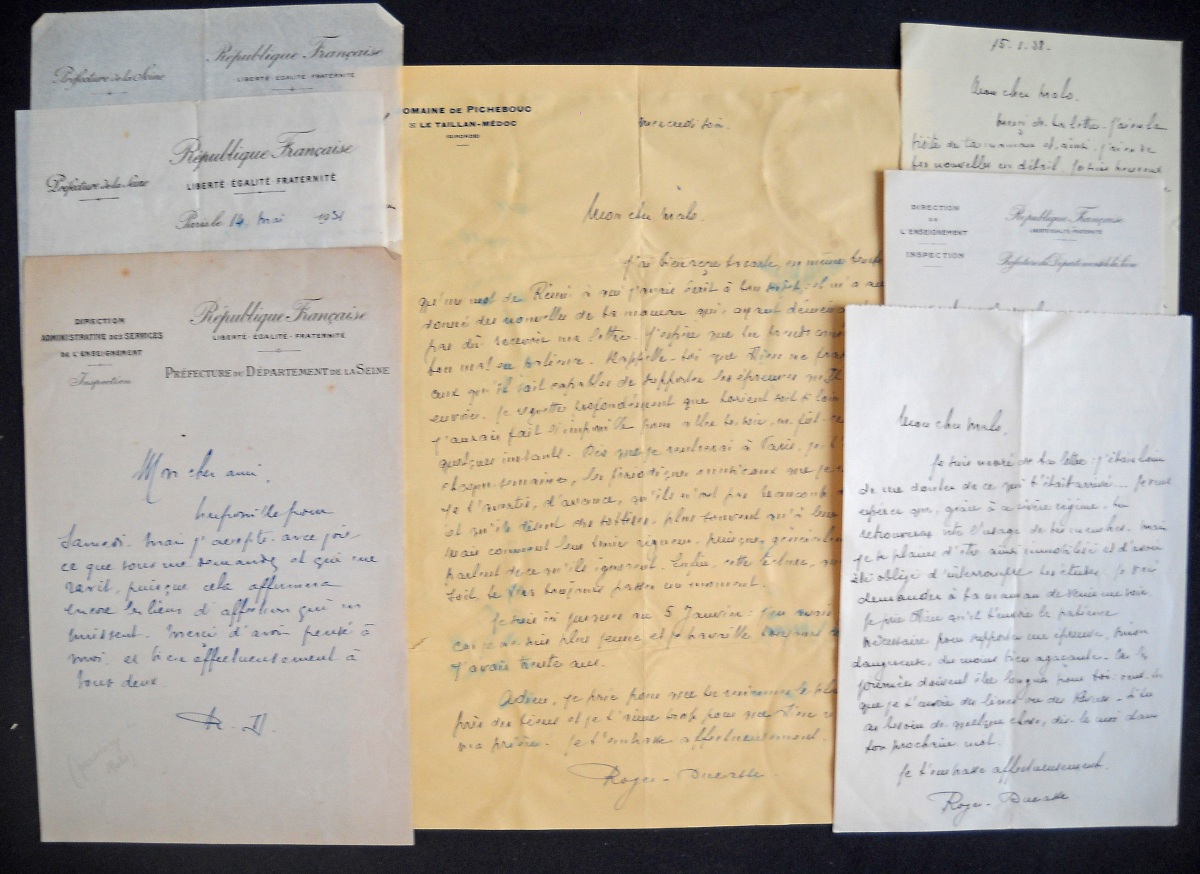 République Française
Préfecture de la Seine
LIBERTÉ-ÉGALITÉ-FRATERNITÉ
République Française
Préfecture de la Seine
LIBERTÉ-ÉGALITÉ-FRATERNITÉ
Paris le 14 mai 1931
DIRECTION
ADMINISTRATIVE DES SERVICES
DE L'ENSEIGNEMENT
Inspection
République Française
LIBERTÉ-ÉGALITÉ-FRATERNITÉ
PRÉFECTURE DU DÉPARTEMENT DE LA SEINE
Mon cher ami,
Impossible pour
Samedi. Mais j'accepte avec joie
ce que vous me demandez et qui me
ravit, puisque cela affirmera
encore les liens d'affection qui nous
unissent. Merci d'avoir pensé à
moi, et bien affectueusement à
vous deux
R-D.
DOMAINE DE PICHEBOUC
LE TAILLAN-MÉDOC
(GIRONDE)
Mercredi soir.
Mon cher Malo.
J'ai bien reçu ta carte, en même temps
qu'un mot de Rémi à qui j'avais écrit
donné des nouvelles de ta maman qui, ayant
pas dû recevoir ma lettre. J'espère que tu
bon mal en patience. Rappelle-toi que Dieu ne
ceux qu'il sait capables de supporter les épreuves qu'il
envoie. Je regrette profondément que Lorient soit si loin
J'aurais fait l'impossible pour aller te voir, ne fût-ce
quelques instants. Dès que je rentrerai à Paris, je
chaque semaine, les périodiques musicaux que je
Je t'avertis, d'avance, qu'ils n'ont pas beaucoup
et qu'ils disent des bêtises, plus souvent qu'à leur
mais comment leur tenir rigueur, puisque, généralement
parlent de ce qu'ils ignorent. Enfin, cette lecture
fait toujours passer un moment.
Je suis ici jusqu'au 5 Janvier:
car je ne suis plus jeune et je travaille
j'avais trente ans.
Adieu, je prie pour que tu
près des tiens et je t'aime trop pour que Dieu
ma prière. Je t'embrasse affectueusement.
Roger-Ducasse
15.1.38.
Mon cher Malo.
Merci de ta lettre. J'ai eu la
visite de ta maman et, ainsi, j'ai eu de
tes nouvelles en détail. Je suis heureux
DIRECTION
DE
L'ENSEIGNEMENT
INSPECTION
République Française
LIBERTÉ-ÉGALITÉ-FRATERNITÉ
Préfecture du Département de la Seine
Mon cher Malo,
Je suis navré de ta lettre: j'étais loin
de me douter de ce qui t'était arrivé... Je veux
espérer que, grâce à ce sévère régime, tu
retrouveras vite l'usage de tes
je te plains d'être ainsi immobilisé et d'avoir
été obligé d'interrompre tes études. Je vais
demander à ta maman de venir me voir.
Je prie Dieu qu'il t'envoie la patience
nécessaire pour supporter une épreuve, sinon
dangereuse, du moins bien agaçante. Car les
journées doivent être longues pour toi: veux-tu
que je t'envoie des livres ou des Revues. As-tu
besoin de quelque chose, dis-le moi dans
ton prochain mot.
Je t'embrasse affectueusement.
Roger-Ducasse